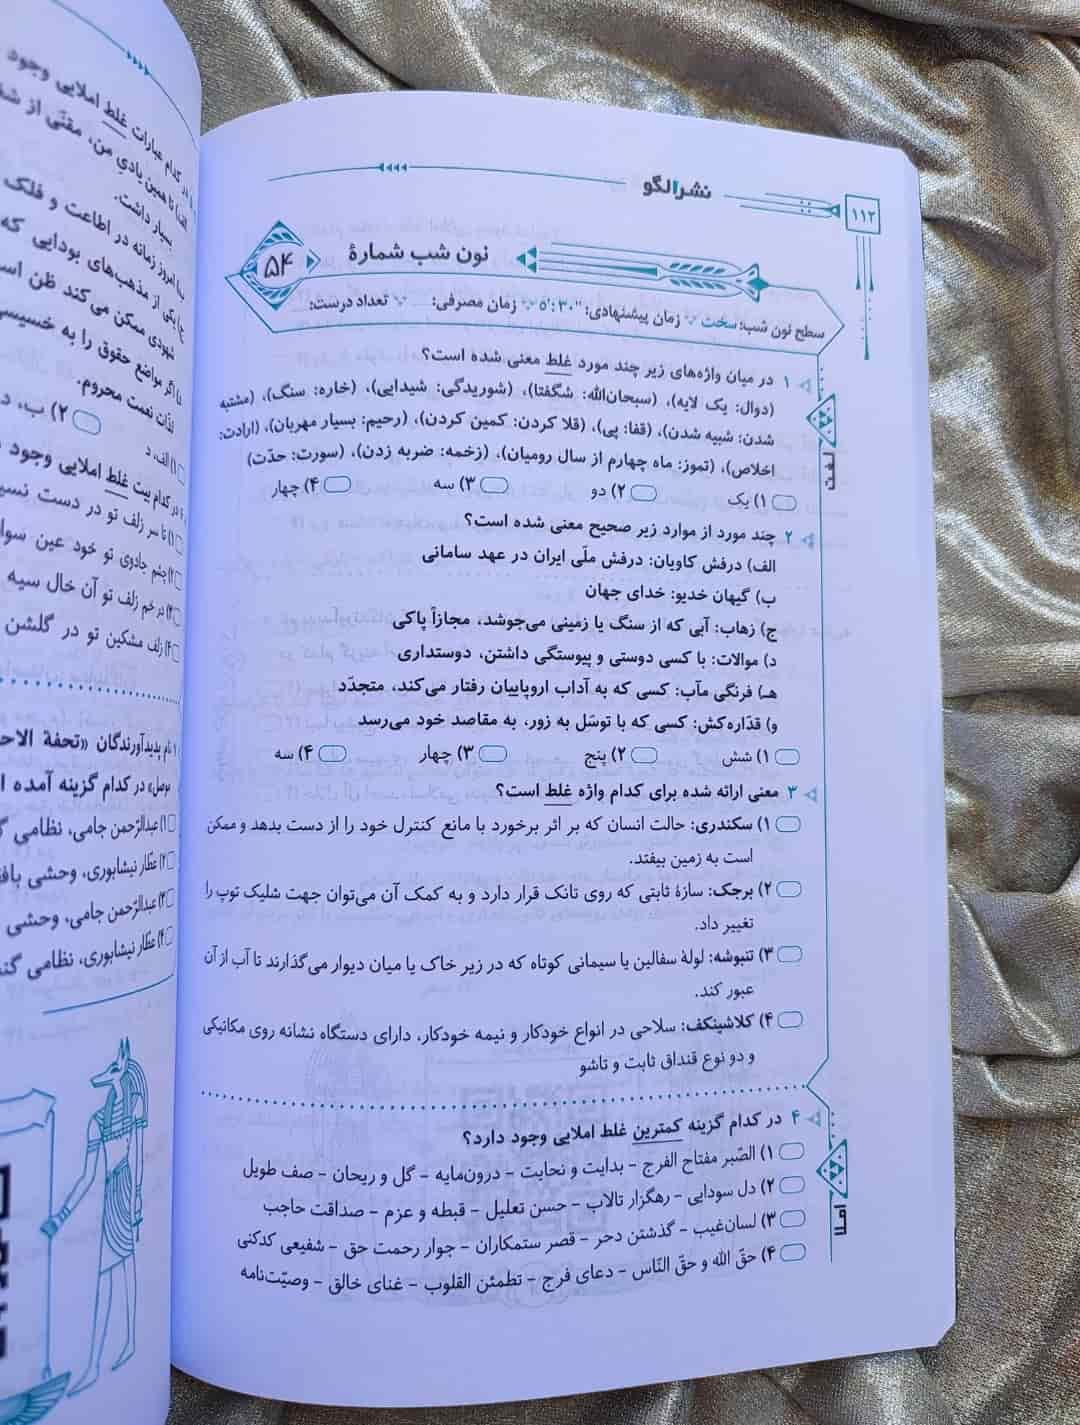 نشرالگو
۱۱۲
نون شب شمارهٔ
۵۴
سطح نون شب: سخت زمان پیشنهادی: "۳۰:'۵ زمان مصرفی: تعداد درست:
لغت
۱ در میان واژه‌های زیر چند مورد غلط معنی شده است؟
(دوال: یک لایه)، (سبحان‌الله: شگفتا)، (شوریدگی: شیدایی)، (خاره: سنگ)، (مشتبه
شدن: شبیه شدن)، (قفا: پی)، (قلا کردن: کمین کردن)، (رحیم: بسیار مهربان)، (ارادت:
اخلاص)، (تموز: ماه چهارم از سال رومیان)، (زخمه: ضربه زدن)، (سورت: حدّت)
۱) یک ۲) دو ۳) سه ۴) چهار
۲ چند مورد از موارد زیر صحیح معنی شده است؟
الف) درفش کاویان: درفش ملّی ایران در عهد سامانی
ب) گیهان خدیو: خدای جهان
ج) زهاب: آبی که از سنگ یا زمینی می‌جوشد، مجازاً پاکی
د) موالات: با کسی دوستی و پیوستگی داشتن، دوستداری
هـ) فرنگی مآب: کسی که به آداب اروپاییان رفتار می‌کند، متجدّد
و) قدّاره‌کش: کسی که با توسّل به زور، به مقاصد خود می‌رسد
۱) شش ۲) پنج ۳) چهار ۴) سه
۳ معنی ارائه شده برای کدام واژه غلط است؟
۱) سکندری: حالت انسان که بر اثر برخورد با مانع کنترل خود را از دست بدهد و ممکن
است به زمین بیفتد.
۲) برجک: سازهٔ ثابتی که روی تانک قرار دارد و به کمک آن می‌توان جهت شلیک توپ را
تغییر داد.
۳) تنبوشه: لولهٔ سفالین یا سیمانی کوتاه که در زیر خاک یا میان دیوار می‌گذارند تا آب از آن
عبور کند.
۴) کلاشینکف: سلاحی در انواع خودکار و نیمه خودکار، دارای دستگاه نشانه روی مکانیکی
و دو نوع قنداق ثابت و تاشو
املا
۴ در کدام گزینه کمترین غلط املایی وجود دارد؟
۱) الصّبر مفتاح الفرج - بدایت و نحایت - درون‌مایه - گل و ریحان - صف طویل
۲) دل سودایی - رهگزار تالاب - حسن تعلیل - قبطه و عزم - صداقت حاجب
۳) لسان‌غیب - گذشتن دحر - قصر ستمکاران - جوار رحمت حق - شفیعی کدکنی
۴) حقّ الله و حقّ النّاس - دعای فرج - تطمئن القلوب - غنای خالق - وصیّت‌نامه
در کدام عبارات غلط املایی وجود
الف) تا همین یادی من، مقنّی از
بسیار داشت.
ب) امروز زمانه در اطاعت و فلک
ج) یکی از مذهب‌های بودایی که
شهودی ممکن می‌کند ظن
د) اگر مواضع حقوق را به
لذّات نعمت محروم.
۱) الف، د ۲) ب، د
در کدام بیت غلط املایی وجود
۱) تا سر زلف تو در دست
۲) چشم جادوی تو خود عین
۳) در خم زلف تو آن خال سیه
۴) زلف مشکین تو در گلشن
نام پدیدآورندگان «تحفة
موصل» در کدام گزینه آمده
۱) عبدالرّحمن جامی، نظامی
۲) عطّار نیشابوری، وحشی
۳) عبدالرّحمن جامی، وحشی
۴) عطّار نیشابوری، نظامی